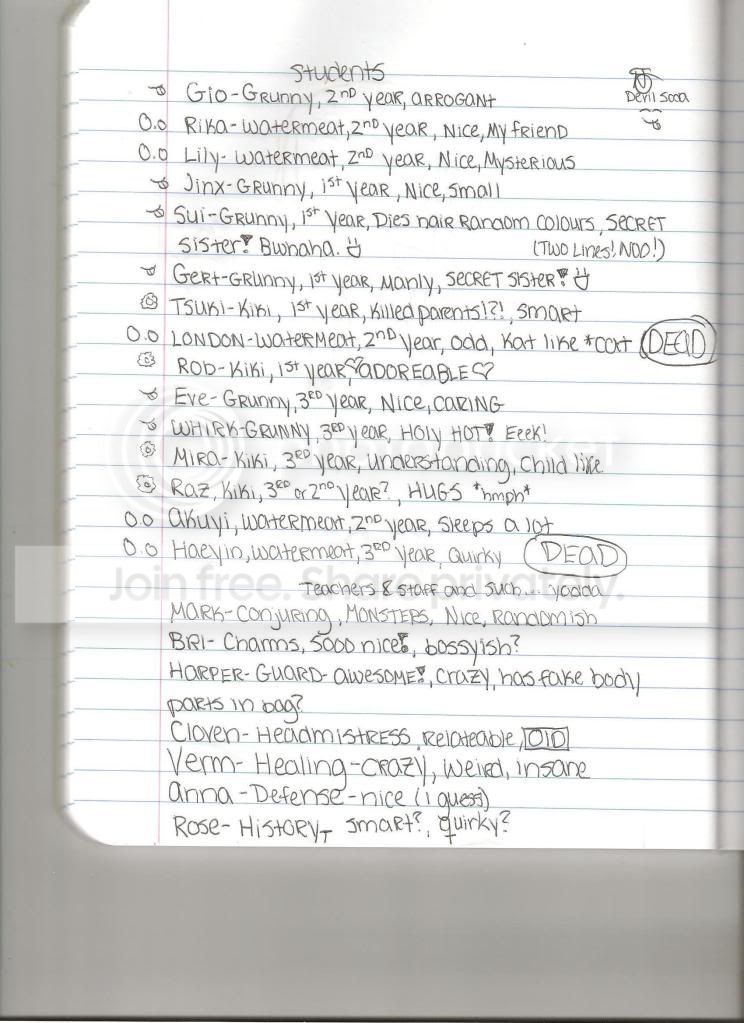 Students
Devil Soda
Gio-Grunny, 2ND year, ARROGANT
O.o Rika-Watermeat, 2ND year, Nice, My friend
O.o Lily-Watermeat, 2ND year, Nice, Mysterious
Jinx-Grunny, 1st year, Nice, small
Sui-Grunny, 1st year, Dies hair Random colours, SECRET
sister! Bwhaha. (Two Lines! NOO!)
Gert-Grunny, 1st year, Manly, SECRET SISTER!
Tsuki-Kiki, 1st year, killed parents!?!, smart
O.o LONDON-Watermeat, 2ND year, odd, kat like *coxt DEAD
ROD-Kiki, 1st year, ♡ADOREABLE♡
Eve-Grunny, 3RD year, Nice, caring
WHIRK-GRUNNY, 3RD year, HOLY HOT! Eeek!
MIRA-Kiki, 3RD year, understanding, child like
Raz, Kiki, 3RD or 2ND year?, HUGS *hmph*
O.o akuyi, watermeat, 2ND year, sleeps a lot
O.o Haeyin, watermeat, 3RD year, Quirky DEAD
Teachers & staff and such... yadda
Join free. Share privately.
MARK-Conjuring, MONSTERS, Nice, Randomish
BRI-Charms, Sooo nice!, bossyish?
HARPER-GUARD-awesome!, crazy, has fake body
parts in bag?
Cloven-Headmistress, Relateable, OLD
Verm-Healing-crazy, weird, insane
anna-Defense-nice (i guess)
Rose-History, smart?, quirky?